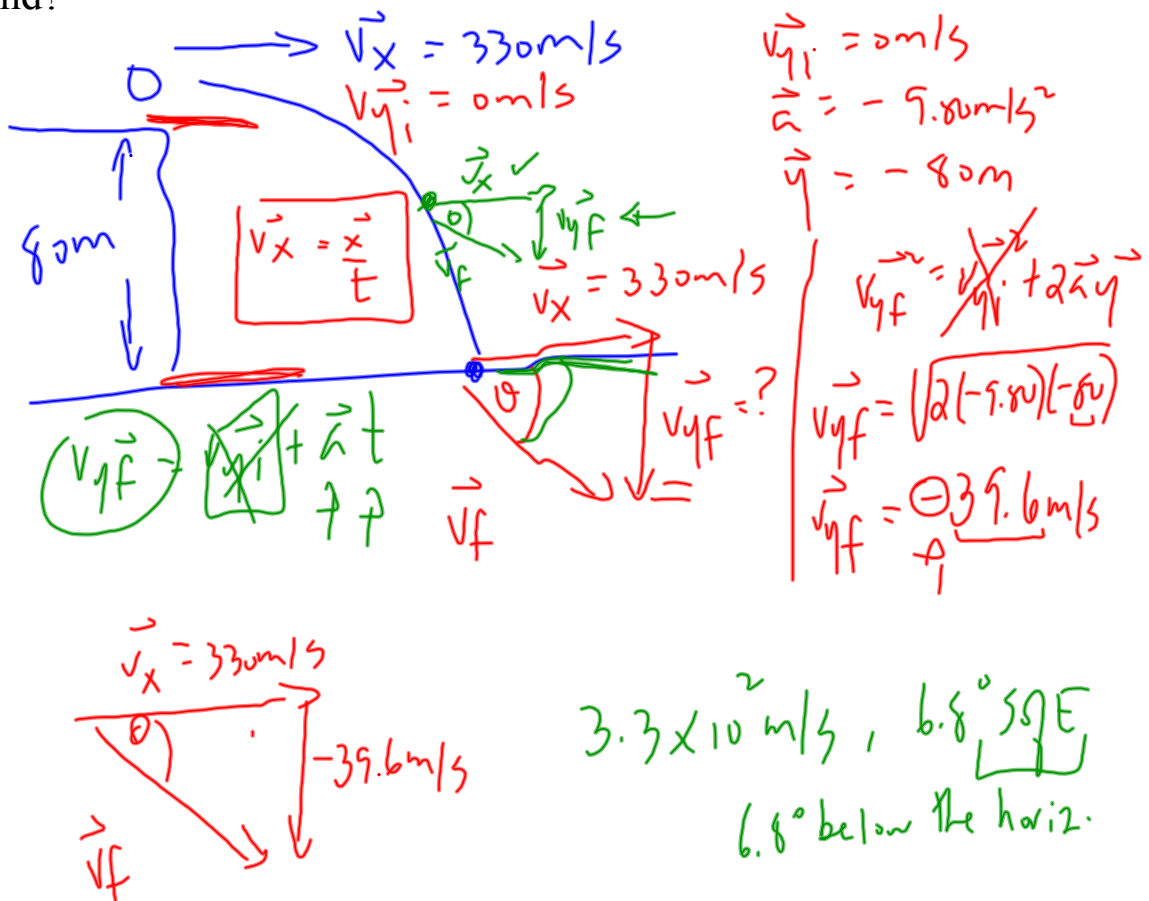 nd?
v⃗x = 330m/s
v⃗yi = 0m/s
80m
v⃗x = x⃗/t
v⃗x ✓
θ
v⃗yf ←
v⃗f
v⃗x = 330m/s
θ
v⃗yf = ?
v⃗f
v⃗yf = v⃗yi + a⃗t
v⃗yi = 0m/s
a⃗ = -9.80m/s²
y⃗ = -80m
v⃗yf² = v⃗yi² + 2a⃗y⃗
v⃗yf = √2(-9.80)(-80)
v⃗yf = -39.6m/s
v⃗x = 330m/s
θ
-39.6m/s
v⃗f
3.3 x 10² m/s, 6.8° S of E
6.8° below the horiz.